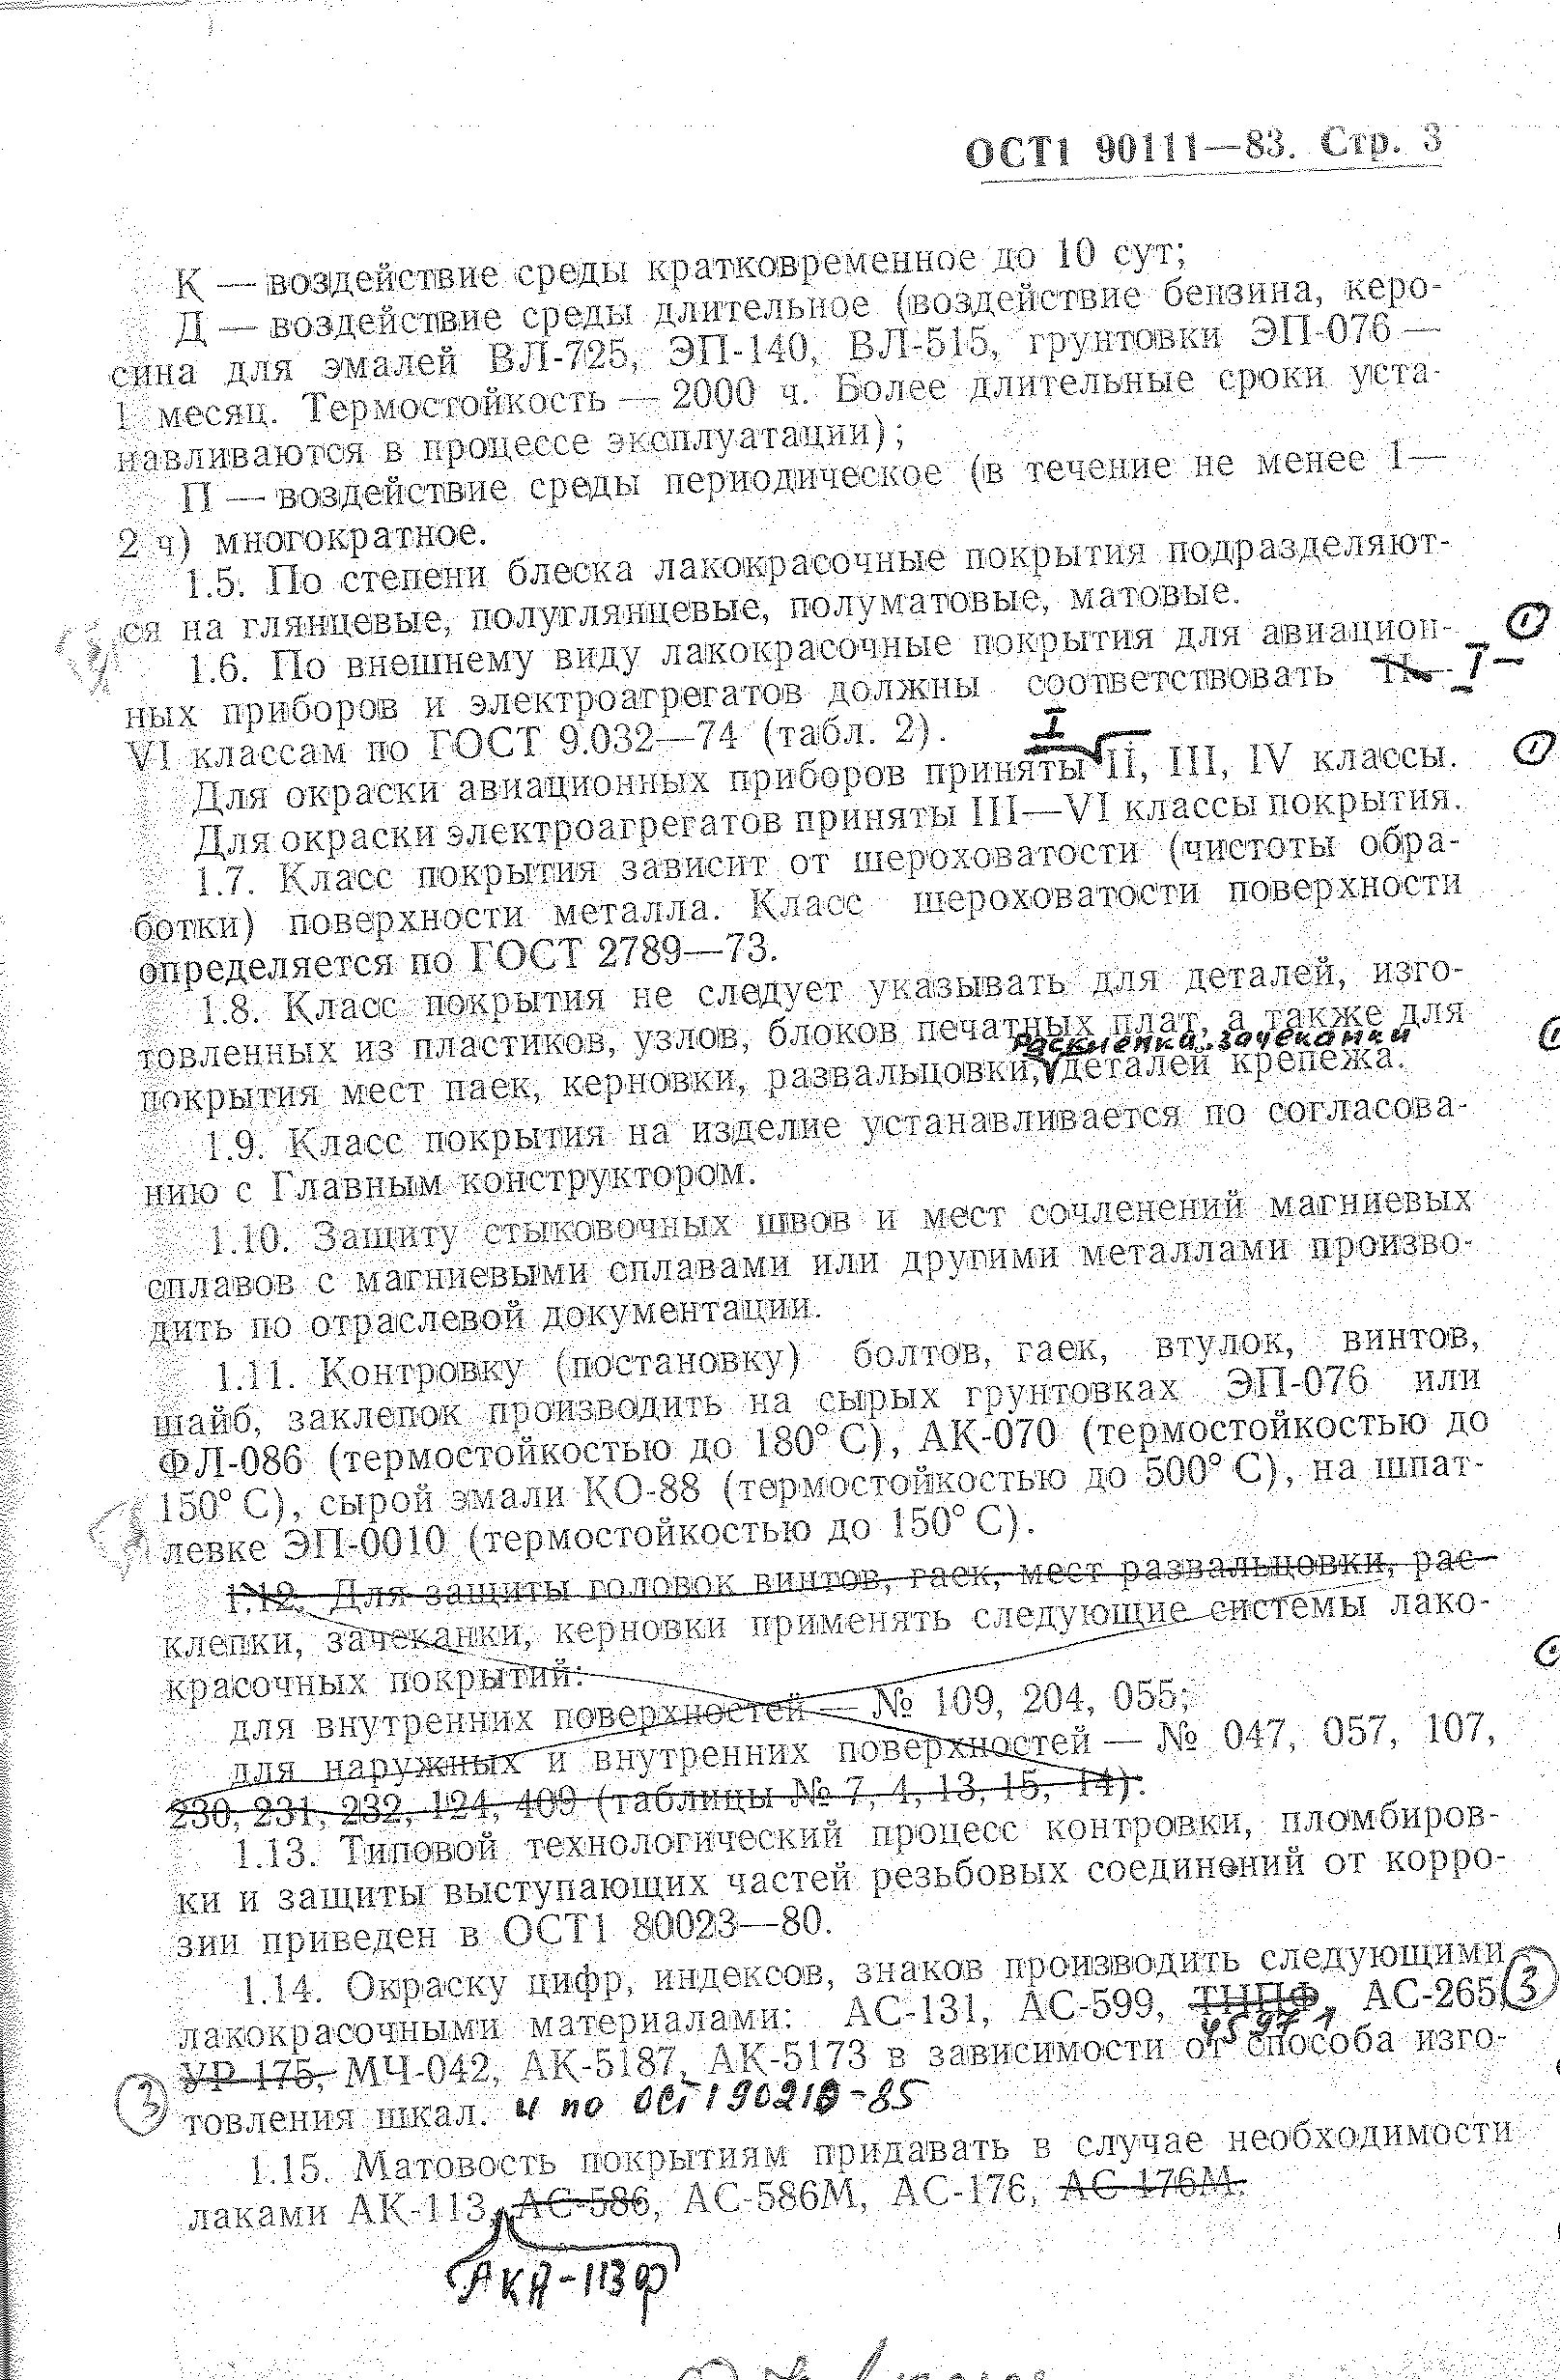 ОСТ1 90111—83. Стр. 3
К — воздействие среды кратковременное до 10 сут;
Д — воздействие среды длительное (воздействие бензина, керо-
сина для эмалей ВЛ-725, ЭП-140, ВЛ-515, грунтовки ЭП-076 —
1 месяц. Термостойкость — 2000 ч. Более длительные сроки уста-
навливаются в процессе эксплуатации);
П — воздействие среды периодическое (в течение не менее 1—
2 ч) многократное.
1.5. По степени блеска лакокрасочные покрытия подразделяют-
ся на глянцевые, полуглянцевые, полуматовые, матовые.
1.6. По внешнему виду лакокрасочные покрытия для авиацион- 1
ных приборов и электроагрегатов должны соответствовать II— I —
VI классам по ГОСТ 9.032—74 (табл. 2).
I
Для окраски авиационных приборов приняты II, III, IV классы. 1
Для окраски электроагрегатов приняты III—VI классы покрытия.
1.7. Класс покрытия зависит от шероховатости (чистоты обра-
ботки) поверхности металла. Класс шероховатости поверхности
определяется по ГОСТ 2789—73.
1.8. Класс покрытия не следует указывать для деталей, изго-
товленных из пластиков, узлов, блоков печатных плат, а также для
расклепки, зачеканки
покрытия мест паек, керновки, развальцовки, деталей крепежа.
1.9. Класс покрытия на изделие устанавливается по согласова-
нию с Главным конструктором.
1.10. Защиту стыковочных швов и мест сочленений магниевых
сплавов с магниевыми сплавами или другими металлами произво-
дить по отраслевой документации.
1.11. Контровку (постановку) болтов, гаек, втулок, винтов,
шайб, заклепок производить на сырых грунтовках ЭП-076 или
ФЛ-086 (термостойкостью до 180° С), АК-070 (термостойкостью до
150° С), сырой эмали КО-88 (термостойкостью до 500° С), на шпат-
левке ЭП-0010 (термостойкостью до 150° С).
1.12. Для защиты головок винтов, гаек, мест развальцовки, рас-
клепки, зачеканки, керновки применять следующие системы лако-
красочных покрытий:
для внутренних поверхностей — № 109, 204, 055;
для наружных и внутренних поверхностей — № 047, 057, 107,
230, 231, 232, 124, 409 (таблицы № 7, 4, 13, 15, 14).
1.13. Типовой технологический процесс контровки, пломбиров-
ки и защиты выступающих частей резьбовых соединений от корро-
зии приведен в ОСТ1 80023—80.
1.14. Окраску цифр, индексов, знаков производить следующими
лакокрасочными материалами: АС-131, АС-599, ТНПФ, АС-265, 3
УР-175, МЧ-042, АК-5187, АК-5173 в зависимости от способа изго-
3 товления шкал. и по ОСТ 1 90210-85
1.15. Матовость покрытиям придавать в случае необходимости
лаками АК-113, АС-586, АС-586М, АС-176, АС-176М.
АК-113Ф